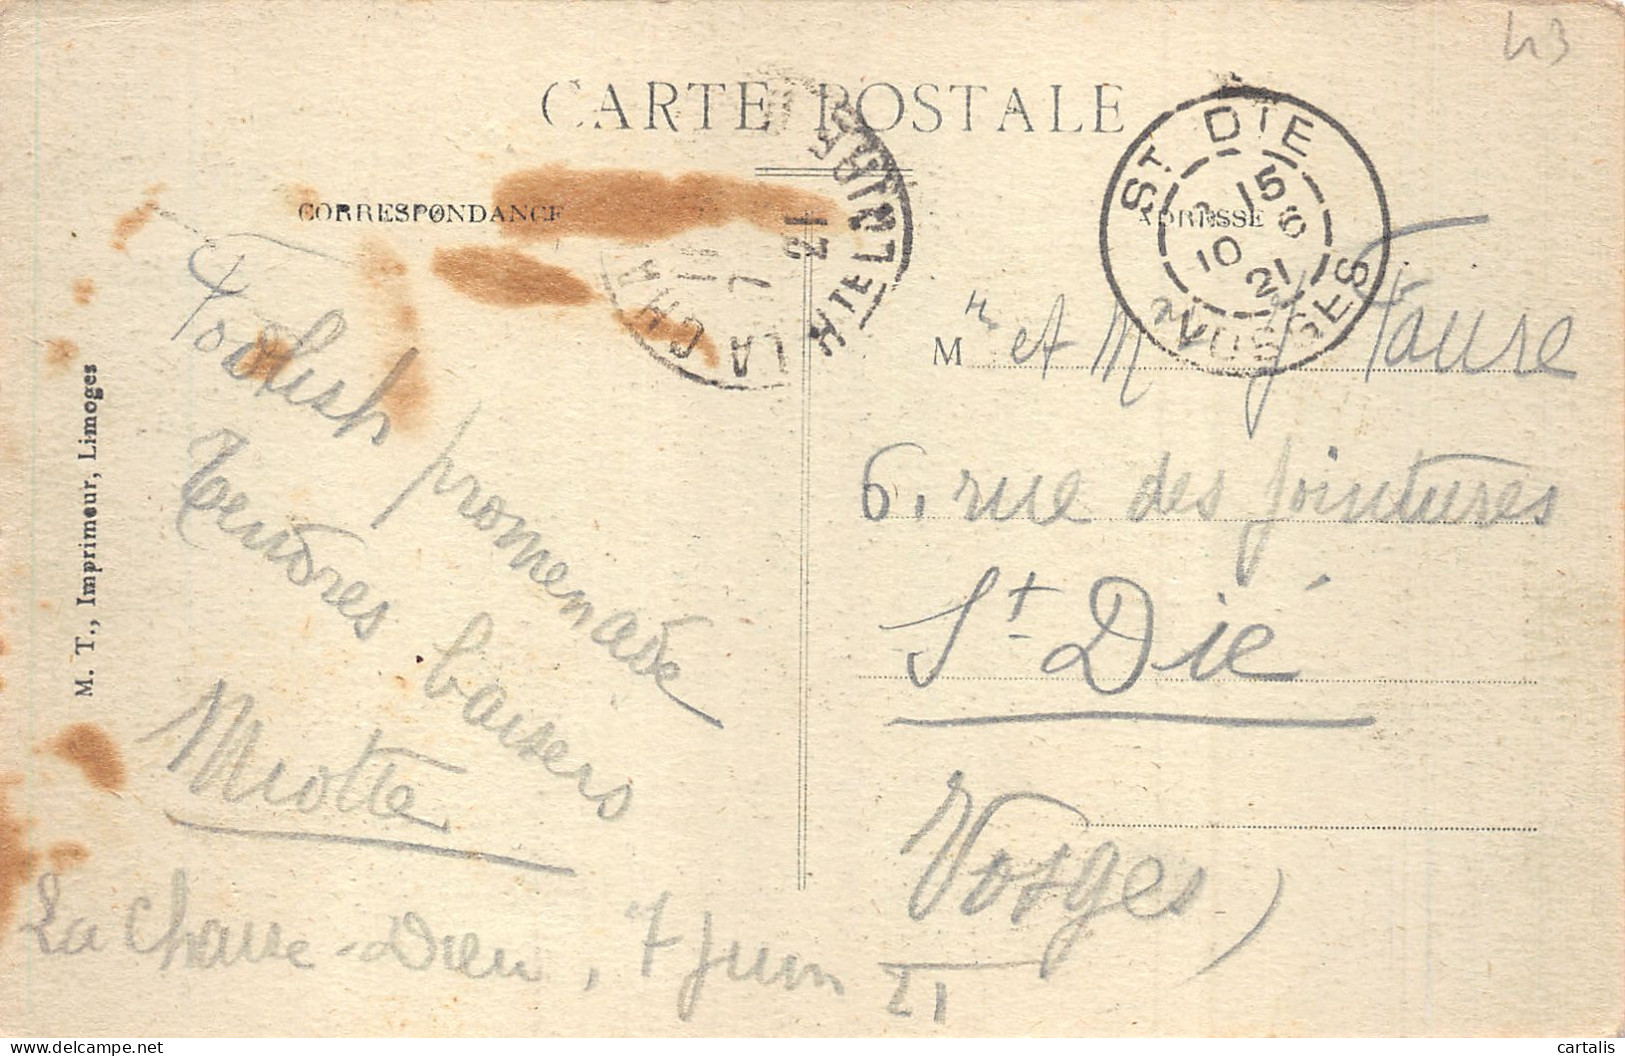 43
CARTE POSTALE
CORRESPONDANCE
ADRESSE
ST DIE
15
10 6
21
VOSGES
LA CH
21
M. T., Imprimeur, Limoges
Foolish promenade
Tendres baisers
Miotte
La Chaise-Dieu, 7 Juin 21
Mr et Mme J Faure
6, rue des Jointures
St Dié
Vosges)
delcampe.net
cartalis